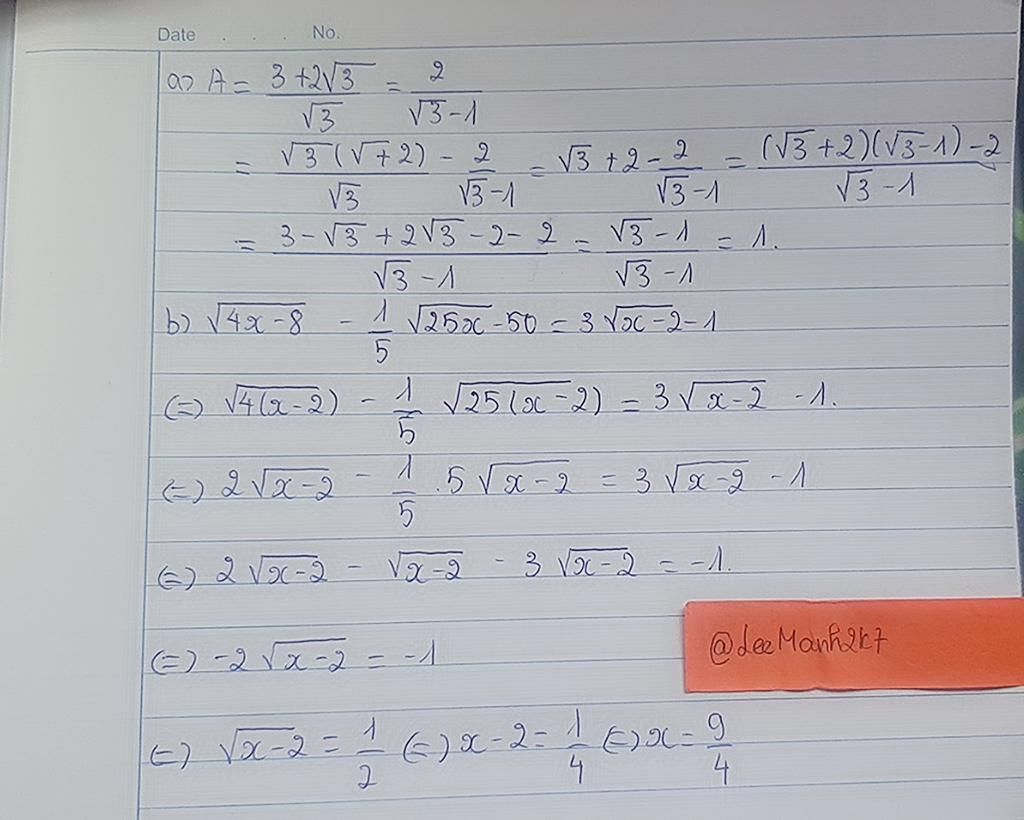 Date . . . No.
a) A = \frac{3+2\sqrt{3}}{\sqrt{3}} = \frac{2}{\sqrt{3}-1}
= \frac{\sqrt{3}(\sqrt{}+2)}{\sqrt{3}} - \frac{2}{\sqrt{3}-1} = \sqrt{3}+2-\frac{2}{\sqrt{3}-1} = \frac{(\sqrt{3}+2)(\sqrt{3}-1)-2}{\sqrt{3}-1}
= \frac{3-\sqrt{3}+2\sqrt{3}-2-2}{\sqrt{3}-1} = \frac{\sqrt{3}-1}{\sqrt{3}-1} = 1.
b) \sqrt{4x-8} - \frac{1}{5}\sqrt{25x-50} = 3\sqrt{x-2}-1
(=) \sqrt{4(x-2)} - \frac{1}{5}\sqrt{25(x-2)} = 3\sqrt{x-2} - 1.
(=) 2\sqrt{x-2} - \frac{1}{5}.5\sqrt{x-2} = 3\sqrt{x-2} - 1
(=) 2\sqrt{x-2} - \sqrt{x-2} - 3\sqrt{x-2} = -1.
(=) -2\sqrt{x-2} = -1
@LeeManh2k7
(=) \sqrt{x-2} = \frac{1}{2} (=) x-2 = \frac{1}{4} (=) x = \frac{9}{4}